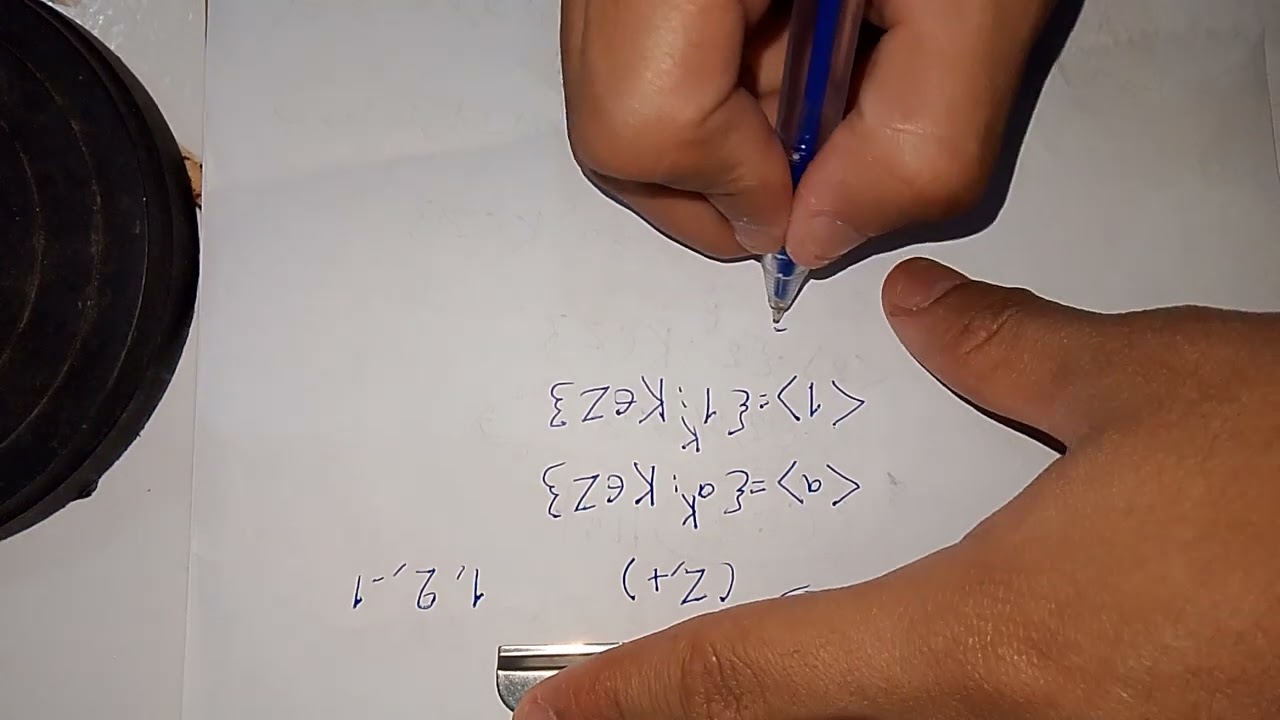 (Z,+) 1, 2, -1
<a> = {a^k; k ∈ Z}
<1> = {1^k; k ∈ Z}